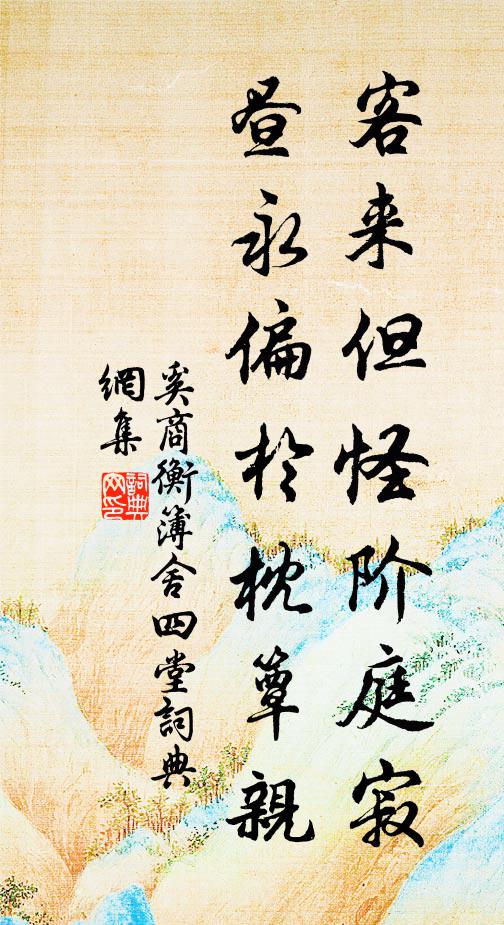 客来但怪阶庭寂
昼永偏於枕簟親
奚商衡簿舍四堂詞典
網集
詞典网印